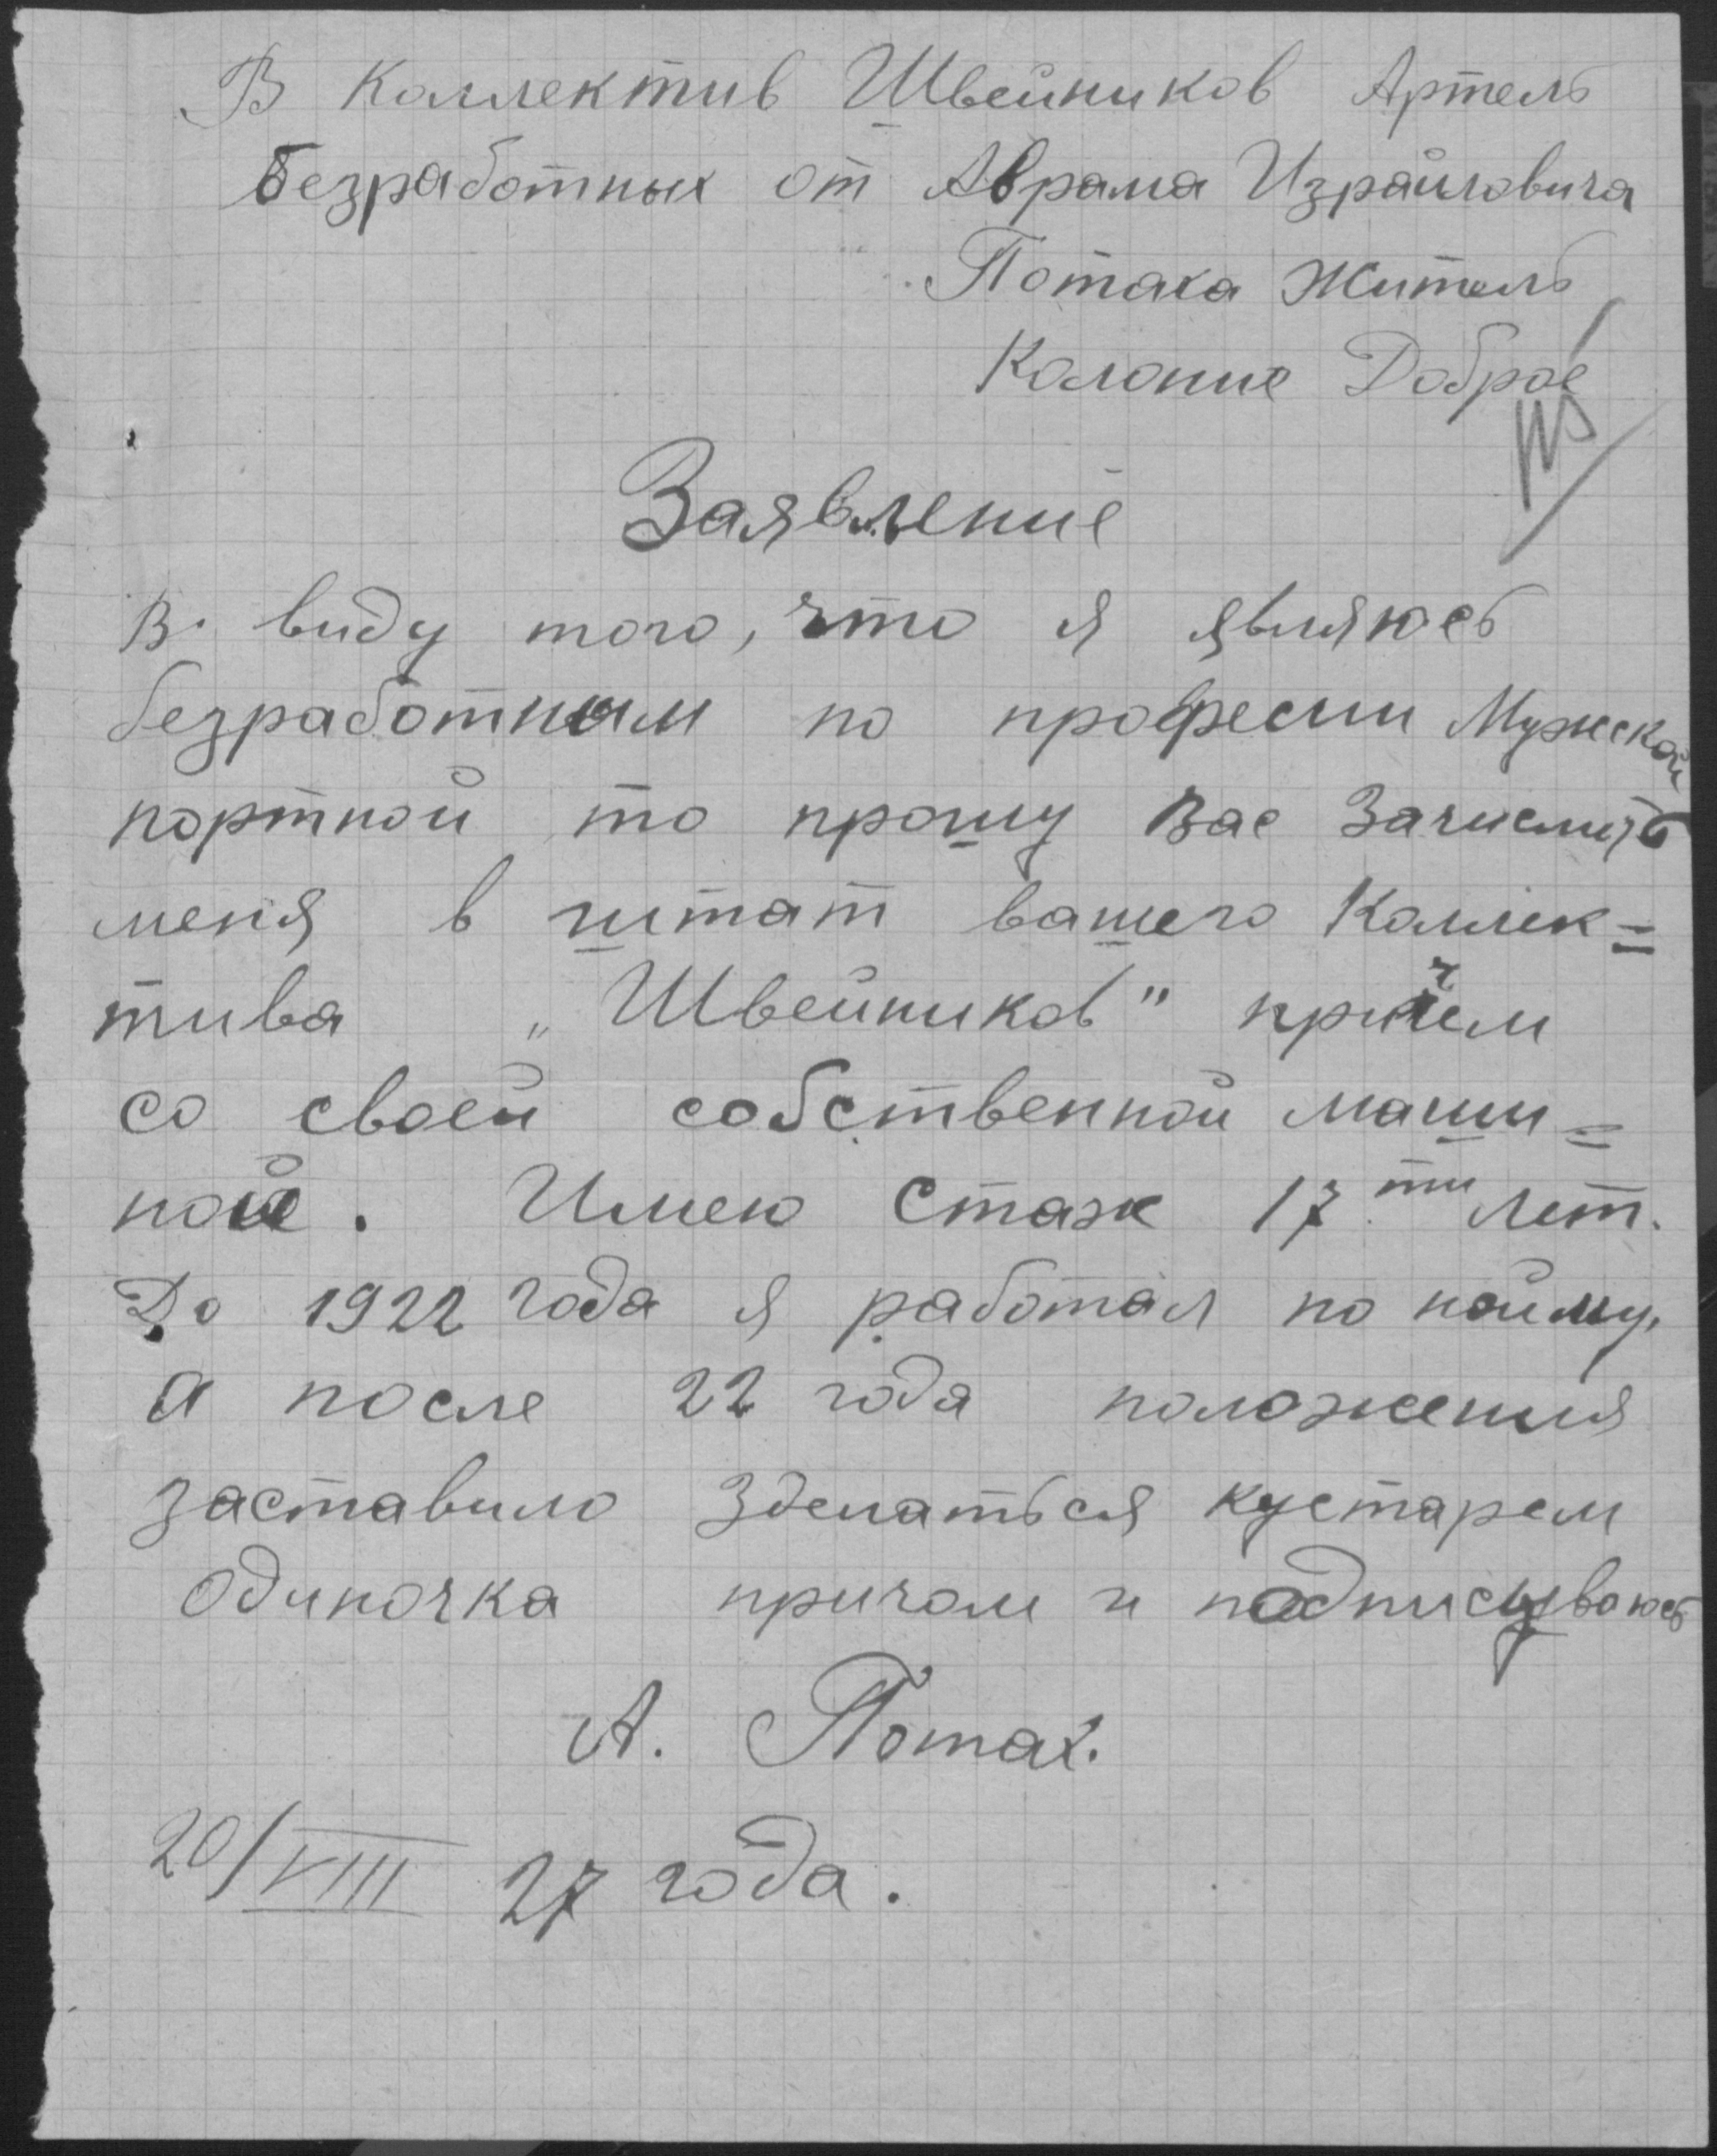 В Коллектив Швейников Артель
Безработных от Аврама Израйловича
Потаха Житель
Колоние Доброе
Заявление
В виду того, что я являюсь
безработным по професии Мужской
портной то прошу Вас Зачислить
меня в штат вашего Коллек=
тива „Швейников" причем
со своей собственной маши=
ной. Имею Стаж 17ти лет.
До 1922 года я работал по найму,
а после 22 года положения
заставило зделаться кустарем
одиночка причом и подписуваюсь
А. Потах.
20/VIII 27 года.